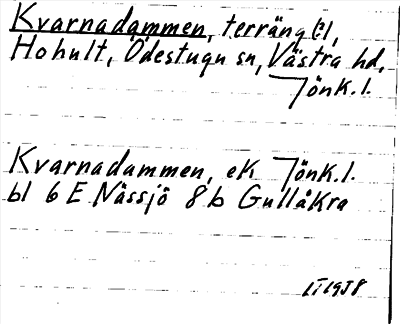 Kvarnadammen, terräng(?),
Hohult, Ödestugu sn, Västra hd,
Jönk.l.
Kvarnadammen, ek Jönk.l.
bl 6 E Nässjö 8 b Gullåkra
1958